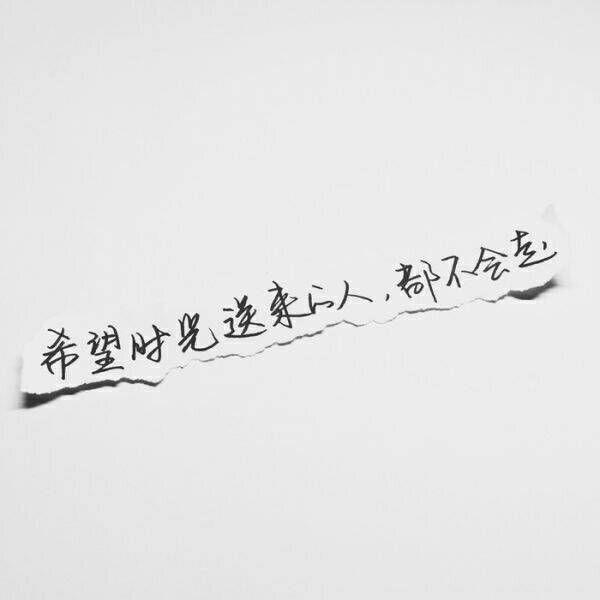 希望时光送来的人，都不会走